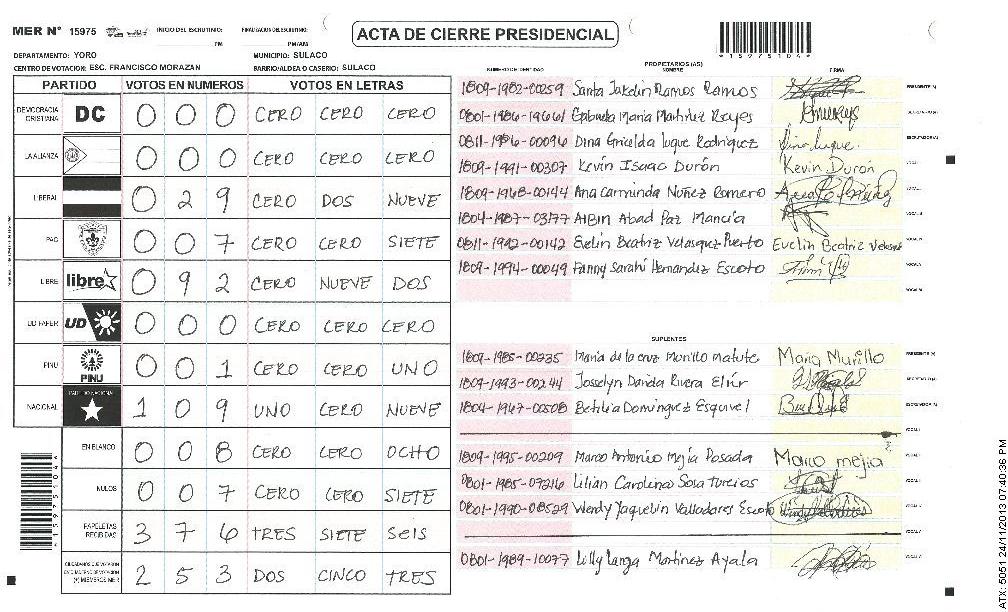 MER Nº 15975
INICIO DEL ESCRUTINIO:
PM
FINALIZACION DEL ESCRUTINIO:
PM/AM
ACTA DE CIERRE PRESIDENCIAL
*15975104*
DEPARTAMENTO: YORO
MUNICIPIO: SULACO
CENTRO DE VOTACION: ESC. FRANCISCO MORAZAN
BARRIO/ALDEA O CASERIO: SULACO
PARTIDO VOTOS EN NUMEROS VOTOS EN LETRAS
DEMOCRACIA CRISTIANA DC 0 0 0 CERO CERO CERO
LA ALIANZA 0 0 0 CERO CERO CERO
LIBERAL 0 2 9 CERO DOS NUEVE
PAC 0 0 7 CERO CERO SIETE
LIBRE libre 0 9 2 CERO NUEVE DOS
UD FAPER UD 0 0 0 CERO CERO CERO
PINU PINU 0 0 1 CERO CERO UNO
NACIONAL 1 0 9 UNO CERO NUEVE
EN BLANCO 0 0 8 CERO CERO OCHO
NULOS 0 0 7 CERO CERO SIETE
PAPELETAS RECIBIDAS 3 7 6 TRES SIETE SEIS
CIUDADANOS QUE VOTARON
(+) MIEMBROS MER 2 5 3 DOS CINCO TRES
*15975104*
NUMERO DE IDENTIDAD
PROPIETARIOS (AS)
NOMBRE
FIRMA
1809-1982-00259 Santa Jakelin Ramos Ramos PRESIDENTE (A)
0801-1986-19661 Gabriela Maria Martinez Reyes
0811-1986-00096 Dina Griselda Luque Rodriguez Dina Luque
1809-1991-00307 Kevin Isaac Durón Kevin Durón
1809-1968-00144 Ana Carminda Nuñez Romero
1804-1987-03177 Albin Abad Paz Mancía
0811-1992-00142 Evelin Beatriz Velasquez Puerto Evelin Beatriz
1809-1994-00049 Fanny Sarahí Hernandez Escoto
SUPLENTES
1809-1985-00235 Maria de la cruz Murillo matute Maria Murillo PRESIDENTE (A)
1809-1993-00244 Josselyn Rivera
1804-1967-00508 Dominguez Esquivel
1809-1995-00209 Marco Antonio Mejía Posada Marco mejia
0801-1985-07216 Lilian Carolina Sosa Turcios
0801-1990-08529 Wendy Jaquelin Valladares Escoto
0801-1989-10077 Martinez Ayala
ATX: 5051 24/11/2013 07:40:36 PM